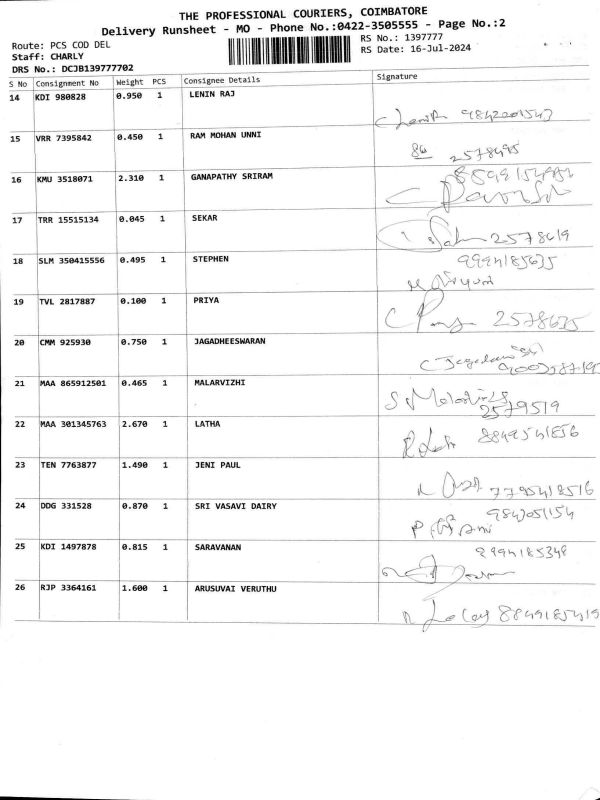 THE PROFESSIONAL COURIERS, COIMBATORE
Delivery Runsheet - MO - Phone No.:0422-3505555 - Page No.:2
Route: PCS COD DEL
RS No.: 1397777
Staff: CHARLY
RS Date: 16-Jul-2024
DRS No.: DCJB139777702
S No Consignment No Weight PCS Consignee Details Signature
14 KDI 980828 0.950 1 LENIN RAJ
15 VRR 7395842 0.450 1 RAM MOHAN UNNI
2578495
16 KMU 3518071 2.310 1 GANAPATHY SRIRAM
17 TRR 15515134 0.045 1 SEKAR
2578619
18 SLM 350415556 0.495 1 STEPHEN
9994185635
19 TVL 2817887 0.100 1 PRIYA
2578635
20 CMM 925930 0.750 1 JAGADHEESWARAN
21 MAA 865912501 0.465 1 MALARVIZHI
2579519
22 MAA 301345763 2.670 1 LATHA
8849541856
23 TEN 7763877 1.490 1 JENI PAUL
7795418516
24 DDG 331528 0.870 1 SRI VASAVI DAIRY
9843051154
25 KDI 1497878 0.815 1 SARAVANAN
9994185348
26 RJP 3364161 1.600 1 ARUSUVAI VERUTHU
8849185419